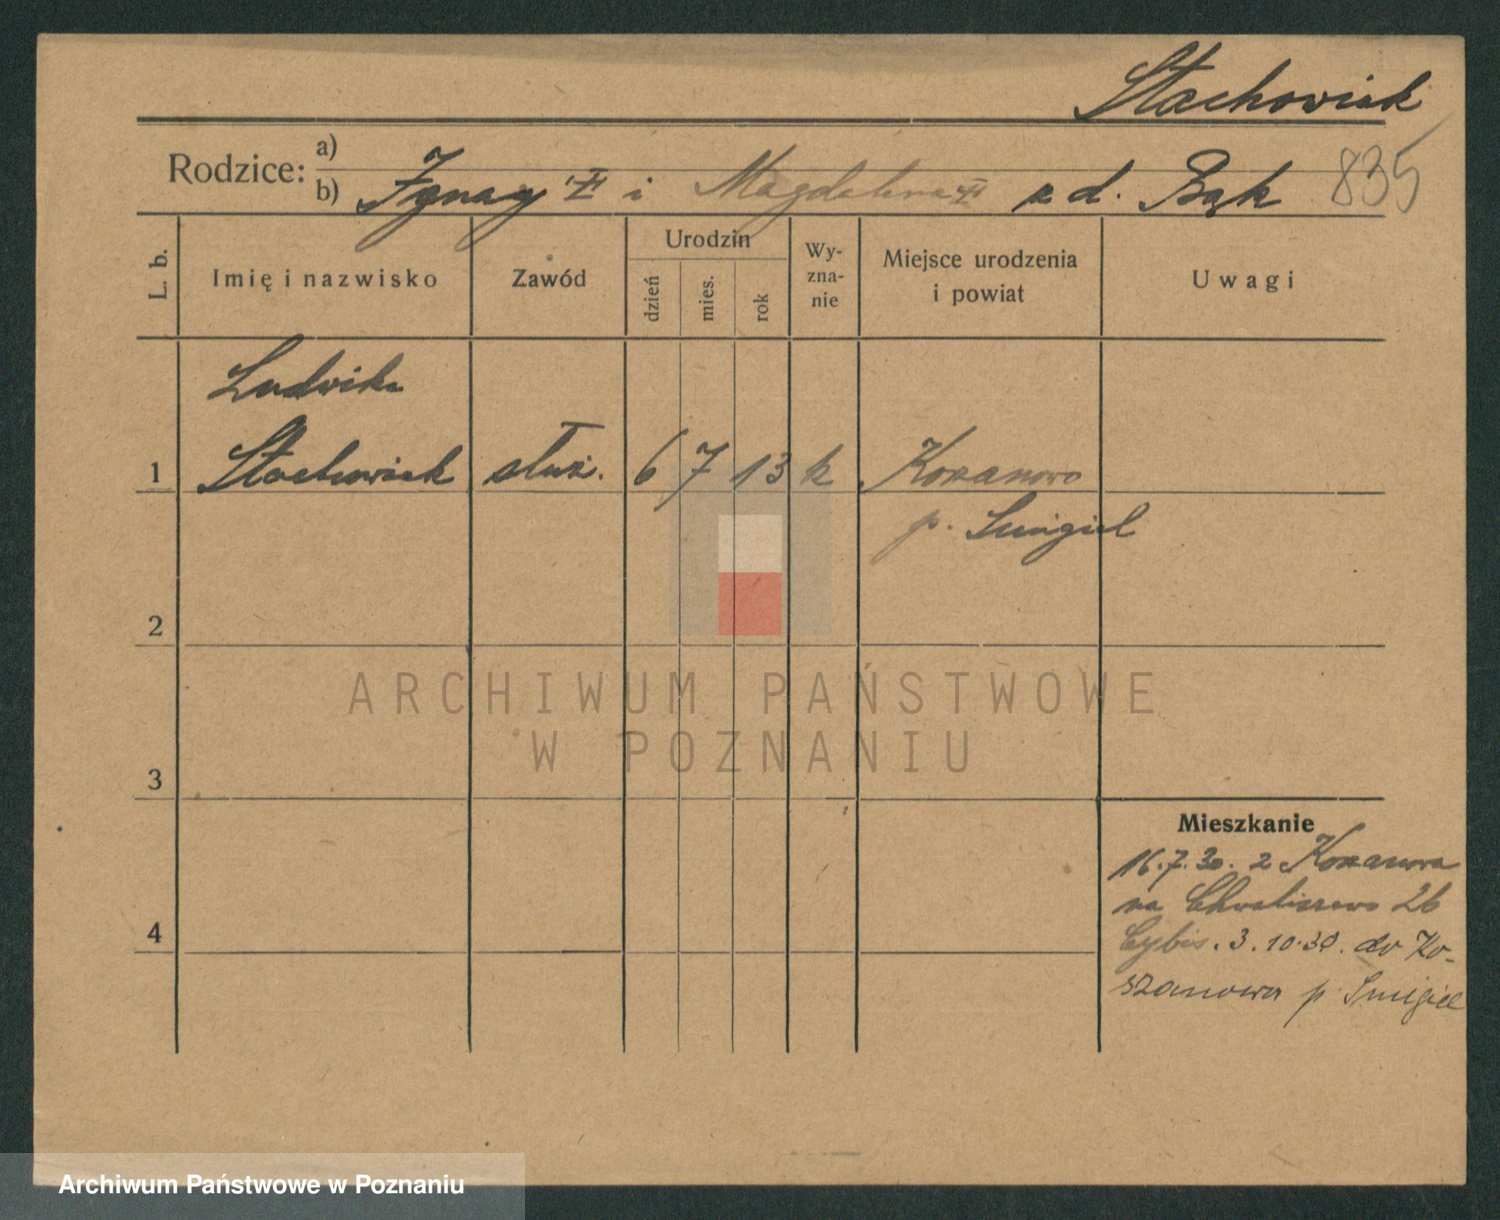 Stachowiak
Rodzice: a)
b) Ignacy i Magdalena z d. Bąk 835
L. b. Imię i nazwisko Zawód Urodzin dzień mies. rok Wy-zna-nie Miejsce urodzenia i powiat Uwagi
Ludwika
1 Stachowiak służ. 6 7 13 k Koszanowo
p. Śmigiel
2
ARCHIWUM PAŃSTWOWE
W POZNANIU
3
Mieszkanie
16.7.30. z Koszanowa
na Chwaliszewo 26
4
Cybis. 3.10.30. do Ko-
szanowa p. Śmigiel
Archiwum Państwowe w Poznaniu